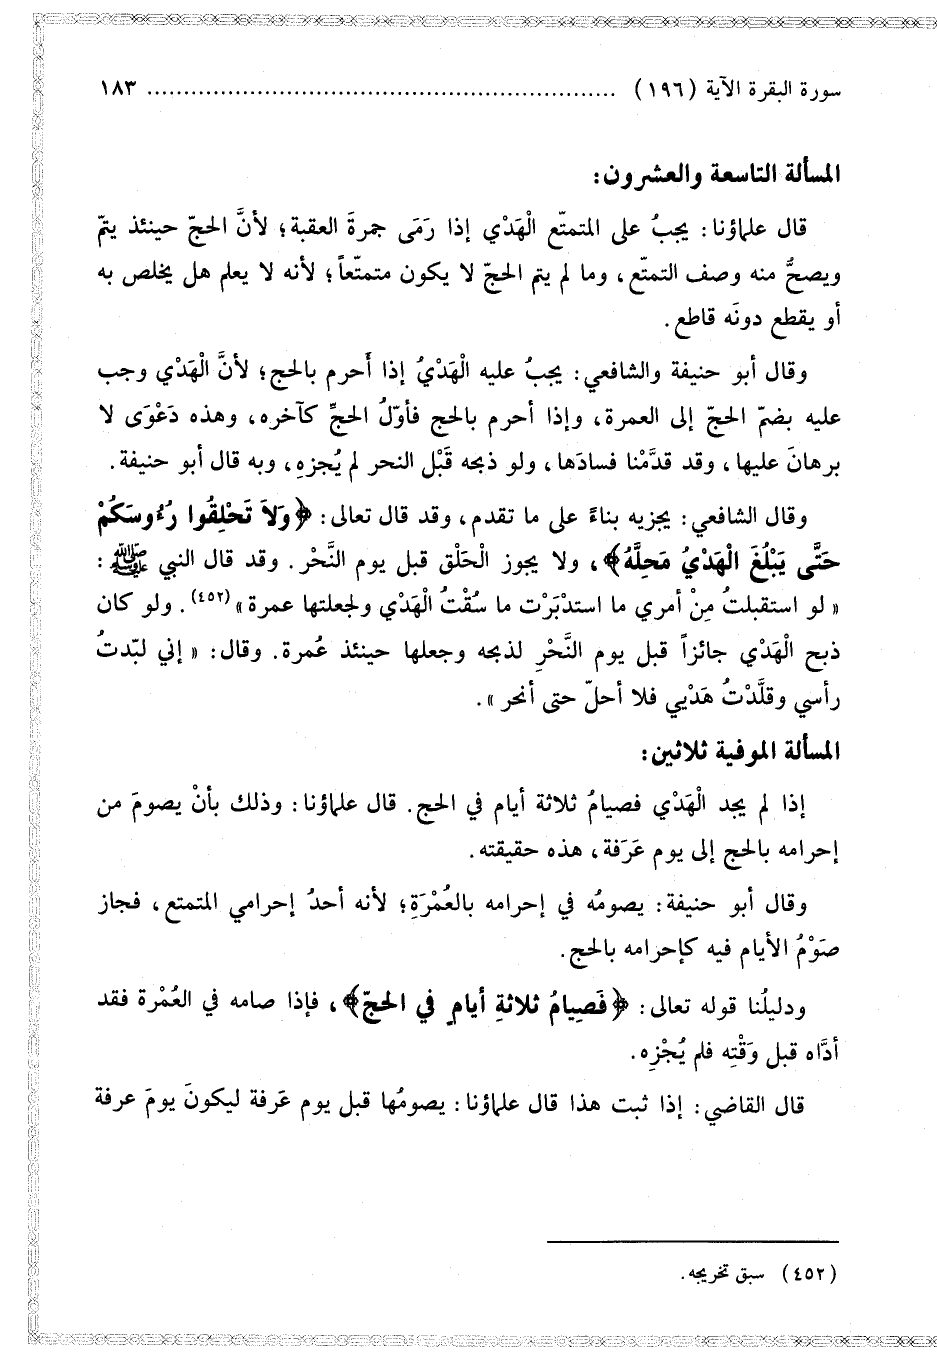 سورة البقرة الآية (١٩٦) ................................................................ ١٨٣
المسألة التاسعة والعشرون:
قال علماؤنا: يجبُ على المتمتّع الْهَدْي إذا رَمَى جمرةَ العقبة؛ لأنَّ الحجّ حينئذ يتمّ
ويصحُّ منه وصف التمتّع، وما لم يتم الحجّ لا يكون متمتّعاً؛ لأنه لا يعلم هل يخلص به
أو يقطع دونَه قاطع.
وقال أبو حنيفة والشافعي: يجبُ عليه الْهَدْيُ إذا أَحرم بالحج؛ لأنَّ الْهَدْي وجب
عليه بضمّ الحجّ إلى العمرة، وإذا أحرم بالحج فأوّلُ الحجِّ كآخره، وهذه دَعْوَى لا
برهانَ عليها، وقد قدَّمْنا فسادَها، ولو ذبحه قَبْل النحر لم يُجزِه، وبه قال أبو حنيفة.
وقال الشافعي: يجزيه بناءً على ما تقدم، وقد قال تعالى: ﴿وَلاَ تَحْلِقُوا رُءُوسَكُمْ
حَتَّى يَبْلُغَ الْهَدْيُ مَحِلَّهُ﴾، ولا يجوز الْحَلْق قبل يوم النَّحْر. وقد قال النبي ﷺ:
«لو استقبلتُ مِنْ أمري ما استدْبَرْت ما سُقْتُ الْهَدْي ولجعلتها عمرة»(٤٥٢). ولو كان
ذبح الْهَدْي جائزاً قبل يوم النَّحْرِ لذبحه وجعلها حينئذ عُمرة. وقال: «إني لبّدتُ
رأسي وقلَّدْتُ هَدْيي فلا أحلّ حتى أنحر».
المسألة الموفية ثلاثين:
إذا لم يجد الْهَدْي فصيامُ ثلاثة أيام في الحج. قال علماؤنا: وذلك بأنْ يصومَ من
إحرامه بالحج إلى يوم عَرَفة، هذه حقيقته.
وقال أبو حنيفة: يصومُه في إحرامه بالعُمْرَةِ؛ لأنه أحدُ إحرامي المتمتع، فجاز
صَوْمُ الأيام فيه كإحرامه بالحج.
ودليلُنا قوله تعالى: ﴿فَصِيامُ ثلاثةِ أيامٍ في الحجّ﴾، فإذا صامه في العُمْرة فقد
أدَّاه قبل وَقْتِه فلم يُجْزِه.
قال القاضي: إذا ثبت هذا قال علماؤنا: يصومُها قبل يوم عَرفة ليكونَ يومَ عرفة
(٤٥٢) سبق تخريجه.